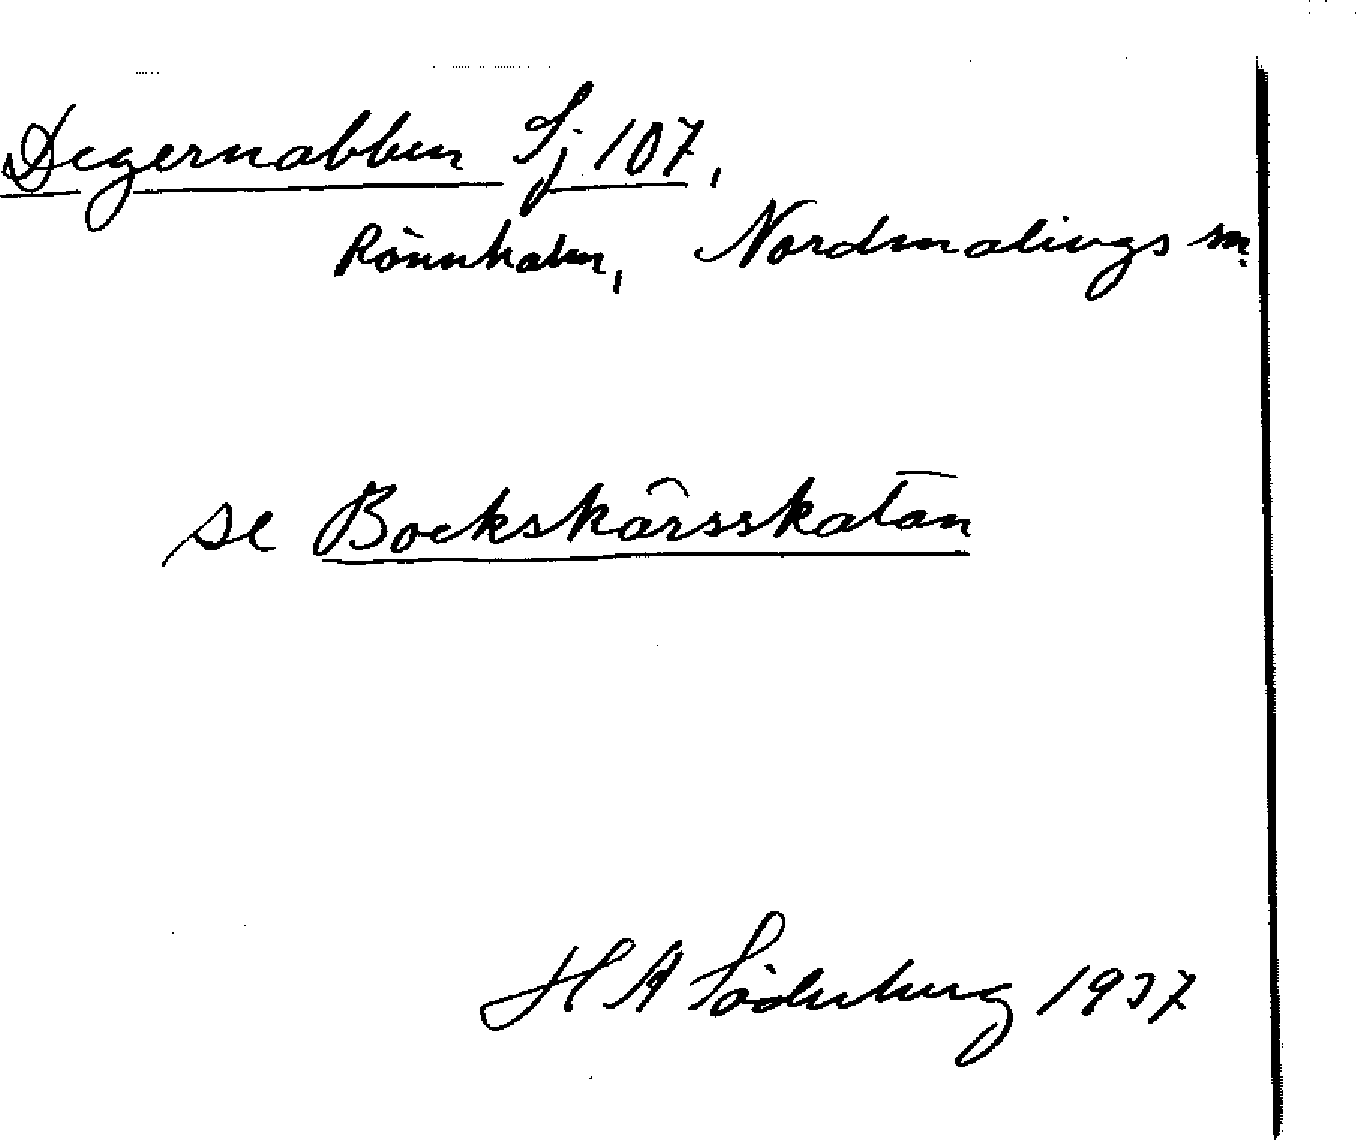 Degernabben Sj 107,
Rönnholm, Nordmalings sn.
se Bockskärsskatan
H A Söderberg 1937